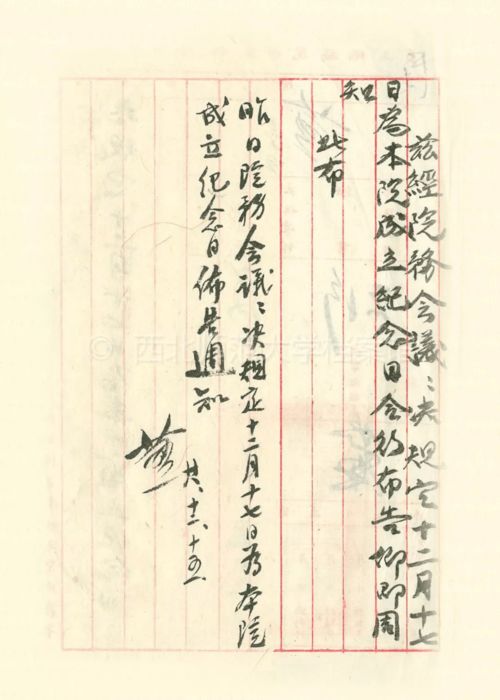 兹經院務會議〻决規定十二月十七
日為本院成立紀念日合行布告卿即周
知
此布
昨日院務會議〻决規定十二月十七日為本院
成立紀念日佈告週知
廿、十二、十五、